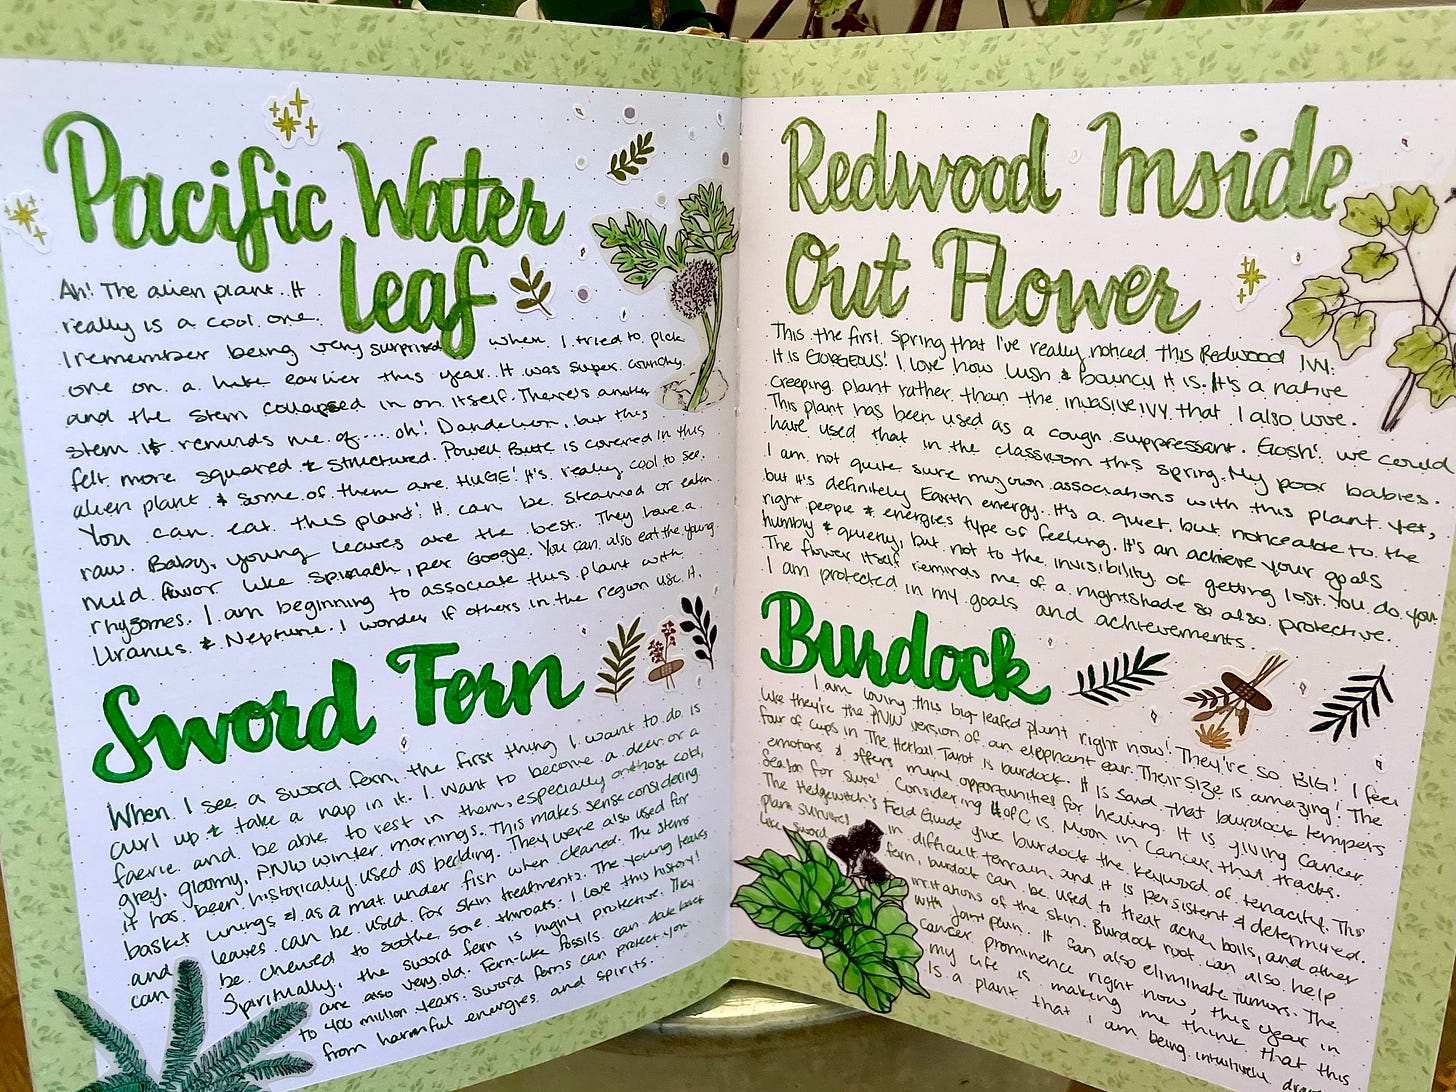 Pacific Water
Leaf
Ah! The alien plant. It
really is a cool one.
I remember being very surprised when I tried to pick
one on a hike earlier this year. It was super crunchy
and the stem collapsed in on itself. There's another
stem it reminds me of.... oh! Dandelion, but this
felt more squared & structured. Powell Butte is covered in this
alien plant & some of them are HUGE! It's really cool to see.
You can eat this plant! It can be steamed or eaten
raw. Baby, young leaves are the best. They have a
mild flavor like spinach, per Google. You can also eat the young
rhyzomes. I am beginning to associate this plant with
Uranus & Neptune. I wonder if others in the region use it.
Sword Fern
When I see a sword fern, the first thing I want to do is
curl up & take a nap in it. I want to become a deer or a
faerie and be able to rest in them, especially on those cold,
grey, gloomy, PNW winter mornings. This makes sense considering
it has been historically used as bedding. They were also used for
basket linings & as a mat under fish when cleaned. The stems
and leaves can be used for skin treatments. The young leaves
can be chewed to soothe sore throats. I love this history!
Spiritually, the sword fern is highly protective. They
are also very old. Fern-like fossils can date back
to 400 million years. Sword ferns can protect you
from harmful energies and spirits.
Redwood Inside
Out Flower
This the first spring that I've really noticed this Redwood Ivy.
It is GORGEOUS! I love how lush & bouncy it is. It's a native
creeping plant rather than the invasive IVY that I also love.
This plant has been used as a cough suppressant. Gosh! We could
have used that in the classroom this spring. My poor babies.
I am not quite sure my own associations with this plant yet,
but it's definitely Earth energy. It's a quiet, but noticeable to the
right people & energies type of feeling. It's an achieve your goals
humbly & quietly, but not to the invisibility of getting lost. You do you
The flower itself reminds me of a nightshade so also protective.
I am protected in my goals and achievements.
Burdock
I am loving this big leafed plant right now! They're so BIG! I feel
like they're the PNW version of an elephant ear. Their size is amazing! The
four of cups in The Herbal Tarot is burdock. It is said that burdock tempers
emotions & offers many opportunities for healing. It is giving Cancer
season for sure! Considering 4 of C is Moon in Cancer, that tracks.
The Hedgewitch's Field Guide give burdock the keyword of tenacity. This
plant survives in difficult terrain, and it is persistent & determined.
Like sword fern, burdock can be used to treat acne, boils, and other
irritations of the skin. Burdock root can also help
with joint pain. It can also eliminate tumors. The
Cancer prominence right now, this year in
my life is making me think that this
is a plant that I am being intuitively